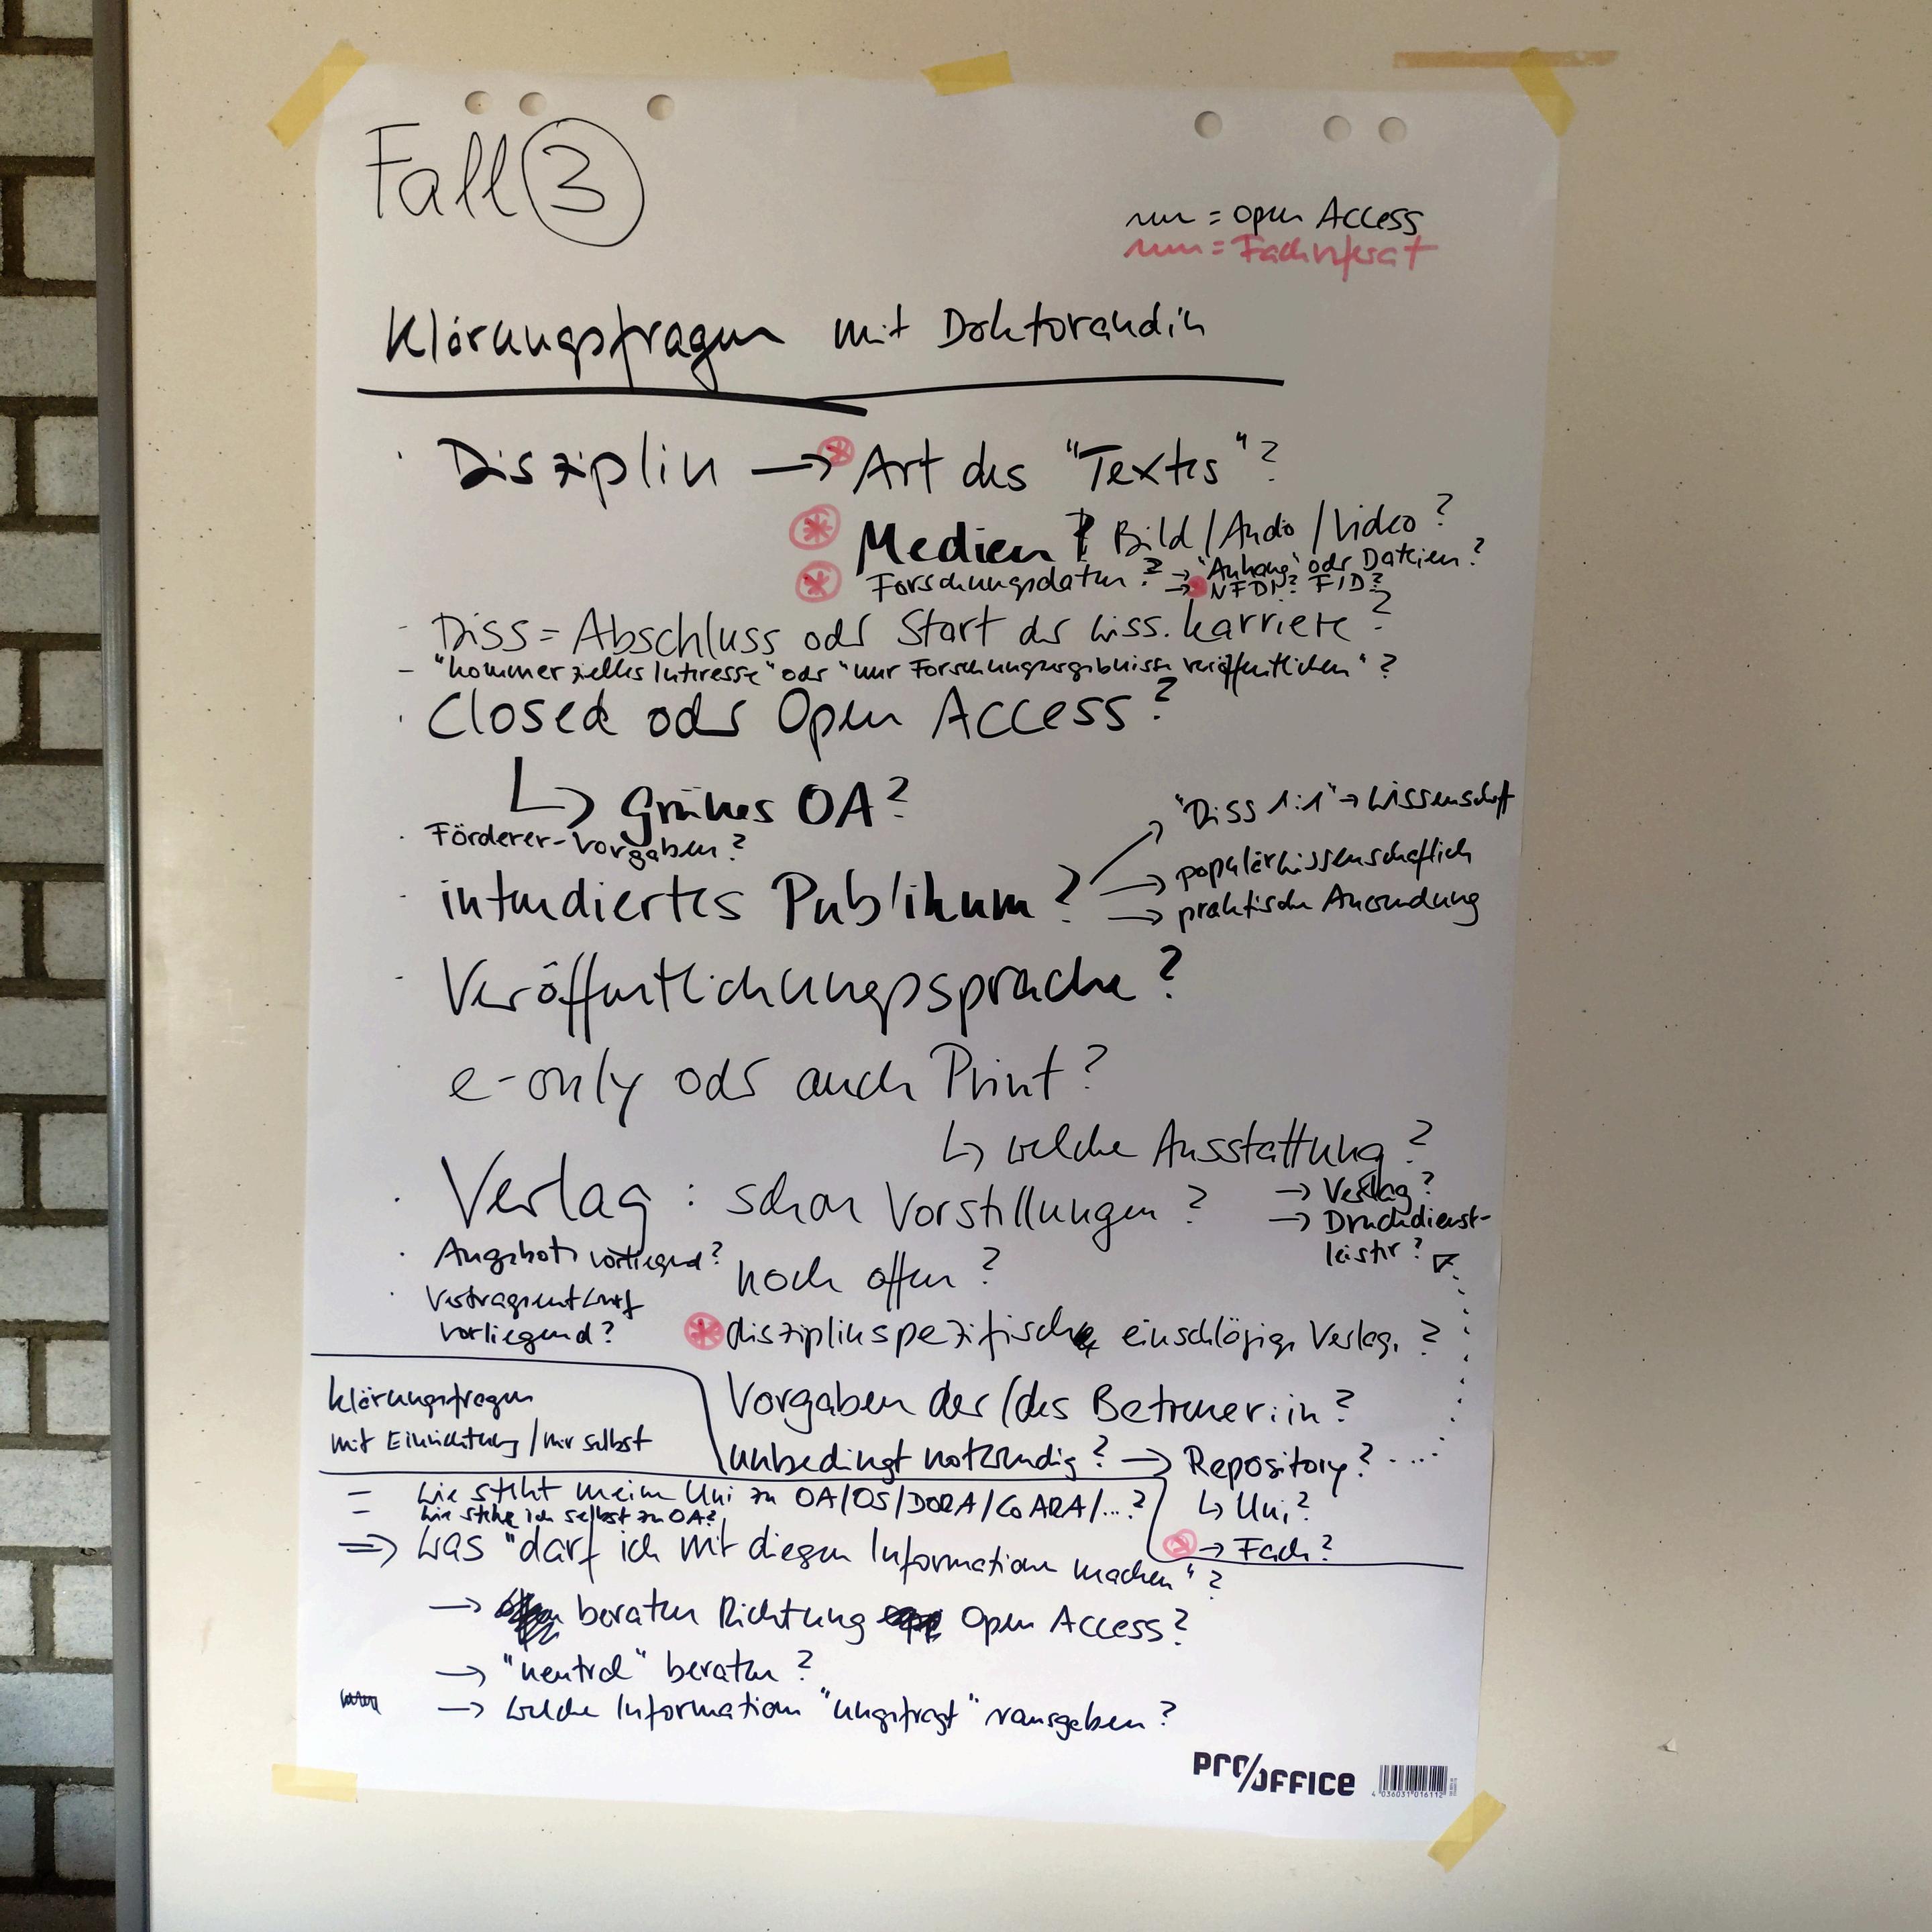 Fall 3
= Open Access
= Fachreferat
Klärungsfragen mit Doktorandin
· Disziplin → * Art des "Textes"?
* Medien ? Bild/Audio/Video?
* Forschungsdaten? → "Anhang" oder Dateien?
→ NFDI? FID?
- Diss = Abschluss oder Start der wiss. Karriere?
- "kommerzielles Interesse" oder "nur Forschungsergebnisse veröffentlichen"?
· Closed oder Open Access?
↳ Grünes OA?
· Förderer-Vorgaben?
- intendiertes Publikum?
→ "Diss 1:1" → Wissenschaft
→ populärwissenschaftlich
→ praktische Anwendung
- Veröffentlichungssprache?
· e-only oder auch Print?
↳ welche Ausstattung?
→ Verlag?
→ Druckdienst-
leister?
· Verlag: schon Vorstellungen?
noch offen?
· Angebote vorliegend?
· Vertragsentwurf
vorliegend?
* disziplinspezifische einschlägige Verlage?
Vorgaben der/des Betreuer:in?
unbedingt notwendig? → Repository?
↳ Uni?
→ Fach?
Klärungsfragen
mit Einrichtung/mir selbst
= Wie steht meine Uni zu OA/OS/DORA/CoARA/...?
Wie stehe ich selbst zu OA?
⇒ Was "darf ich mit diesen Informationen machen"?
→ beraten Richtung Open Access?
→ "neutral" beraten?
→ Welche Informationen "ungefragt" rausgeben?
PRO/OFFICE
4 036031 016112